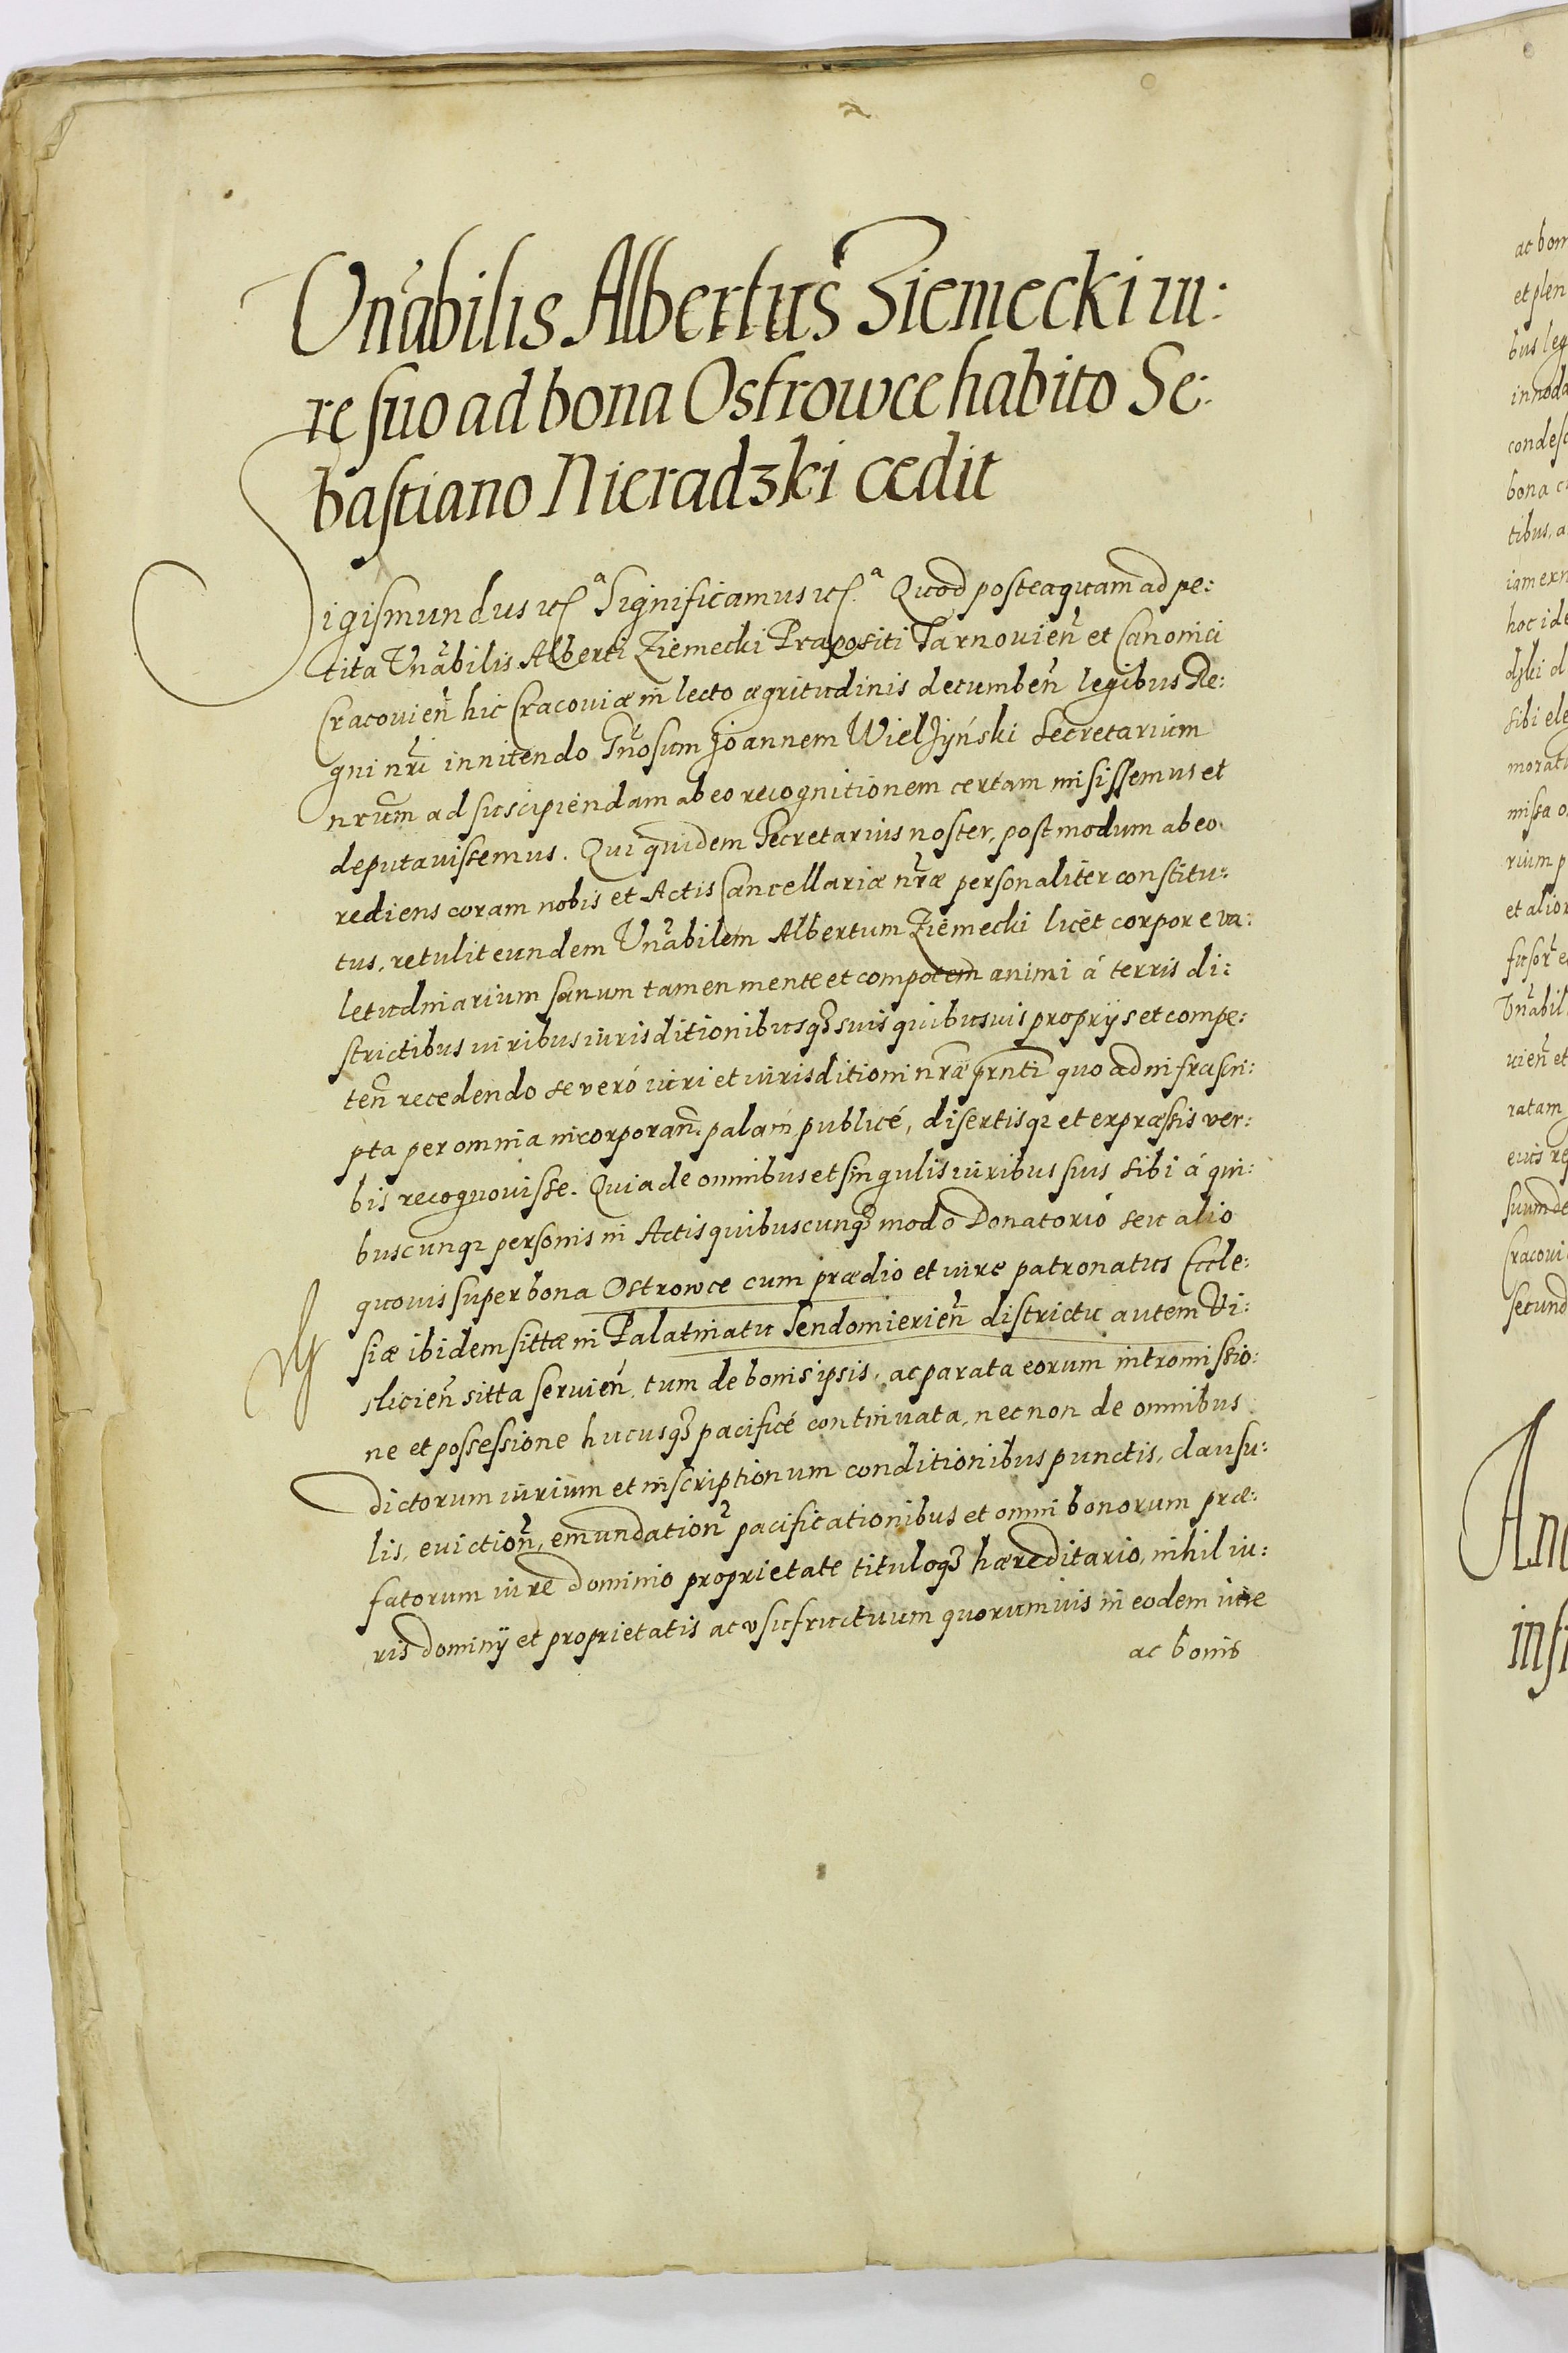 Vnabilis Albertus Ziemecki iu:
re suo ad bona Ostrowce habito Se:
bastiano Nieradzki cedit
Sigismundus etc. Significamus etc. Quod posteaquam ad pe:
tita Vnabilis Alberti Ziemecki Præpositi Tarnouien et Canonici
Cracouien hic Cracouiæ in lecto ægritudinis decumben legibus Re:
gni nri innitendo Gnosum Joannem Wielżyński Secretarium
nrum ad suscipiendam ab eo recognitionem certam misissemus et
deputauissemus. Qui quidem Secretarius noster, postmodum ab eo
rediens coram nobis et Actis Cancellariæ nræ personaliter constitu:
tus, retulit eundem Vnabilem Albertum Ziemecki licet corpore va:
letudinarium sanum tamen mente et compotem animi á terris di:
strictibus iuribus iurisditionibusq suis quibusuis proprijs et compe:
ten recedendo se veró iuri et iurisditioni nræ prnti quo ad infrascri:
pta per omnia incorporan. palam publicé, disertisq et expræssis ver:
bis recognouisse. Quia de omnibus et singulis iuribus suis sibi á qui:
buscunq personis in Actis quibuscunq modo Donatorió seu alio
quouis super bona Ostrowce cum prædio et iure patronatus Eccle:
siæ ibidem sittæ in Palatinatu Sendomierien districtu autem Vi:
slicien sitta seruien, tum de bonis ipsis, ac parata eorum intromissio:
ne et possessione hucusq pacificé continuata, nec non de omnibus
dictorum iurium et inscriptionum conditionibus punctis, clausu:
lis, eviction, emundation pacificationibus et omni bonorum præ:
fatorum iure dominio proprietate tituloq hæreditario, nihil iu:
ris dominij et proprietatis ac vsufructuum quorumuis in eodem iure
ac bonis
ac bon
et plen
bus leg
innoda
condesc
bona c
tibus, a
iam exn
hoc ide
dzki d
sibi ele
morat
missa o
rium p
et alior
Vnabil
uien et
ratam
eius re
suum de
Cracoui
secund
And
inst